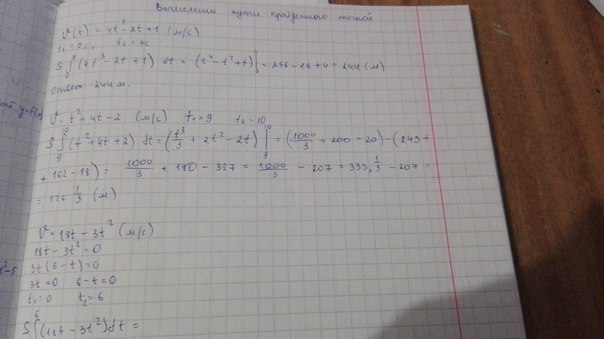 Вычисление пути пройденного точкой
V(t) = 4t³-2t+1 (м/с)
t₁ = 0с, t₂ = 4с
S∫(4t³-2t+1) dt = (t⁴-t²+t)|⁴ = 256-16+4=244 (м)
ответ: 244 м.
V=t²+4t-2 (м/с) t₁=9 t₂=10
S∫₉(t²+4t+2) dt = (t³/3 + 2t²-2t)|₉ = (1000/3 + 200-20)-(243+
+162-18) = 1000/3 + 180 - 387 = 1000/3 - 207 = 333,1/3 - 207 =
= 126 1/3 (м)
V=18t-3t² (м/с)
18t-3t²=0
3t(6-t)=0
3t=0 6-t=0
t₁=0 t₂=6
S∫⁶(18t-3t²)dt =